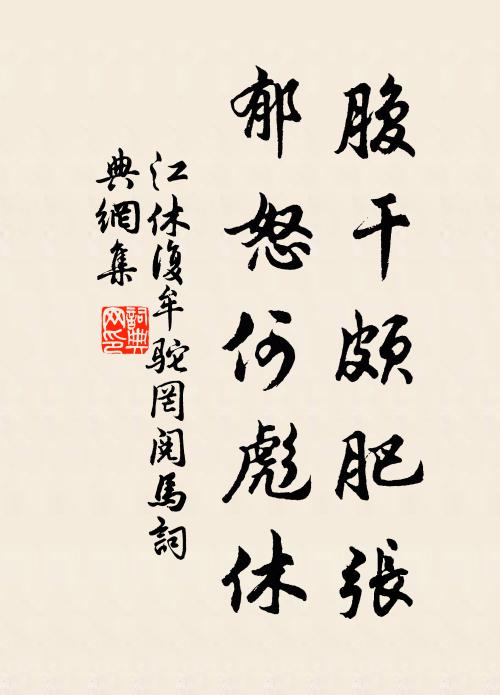 腹干頗肥張
郁怒何彪休
江休復牟駝岡閱馬詞
典網集
詞典网印